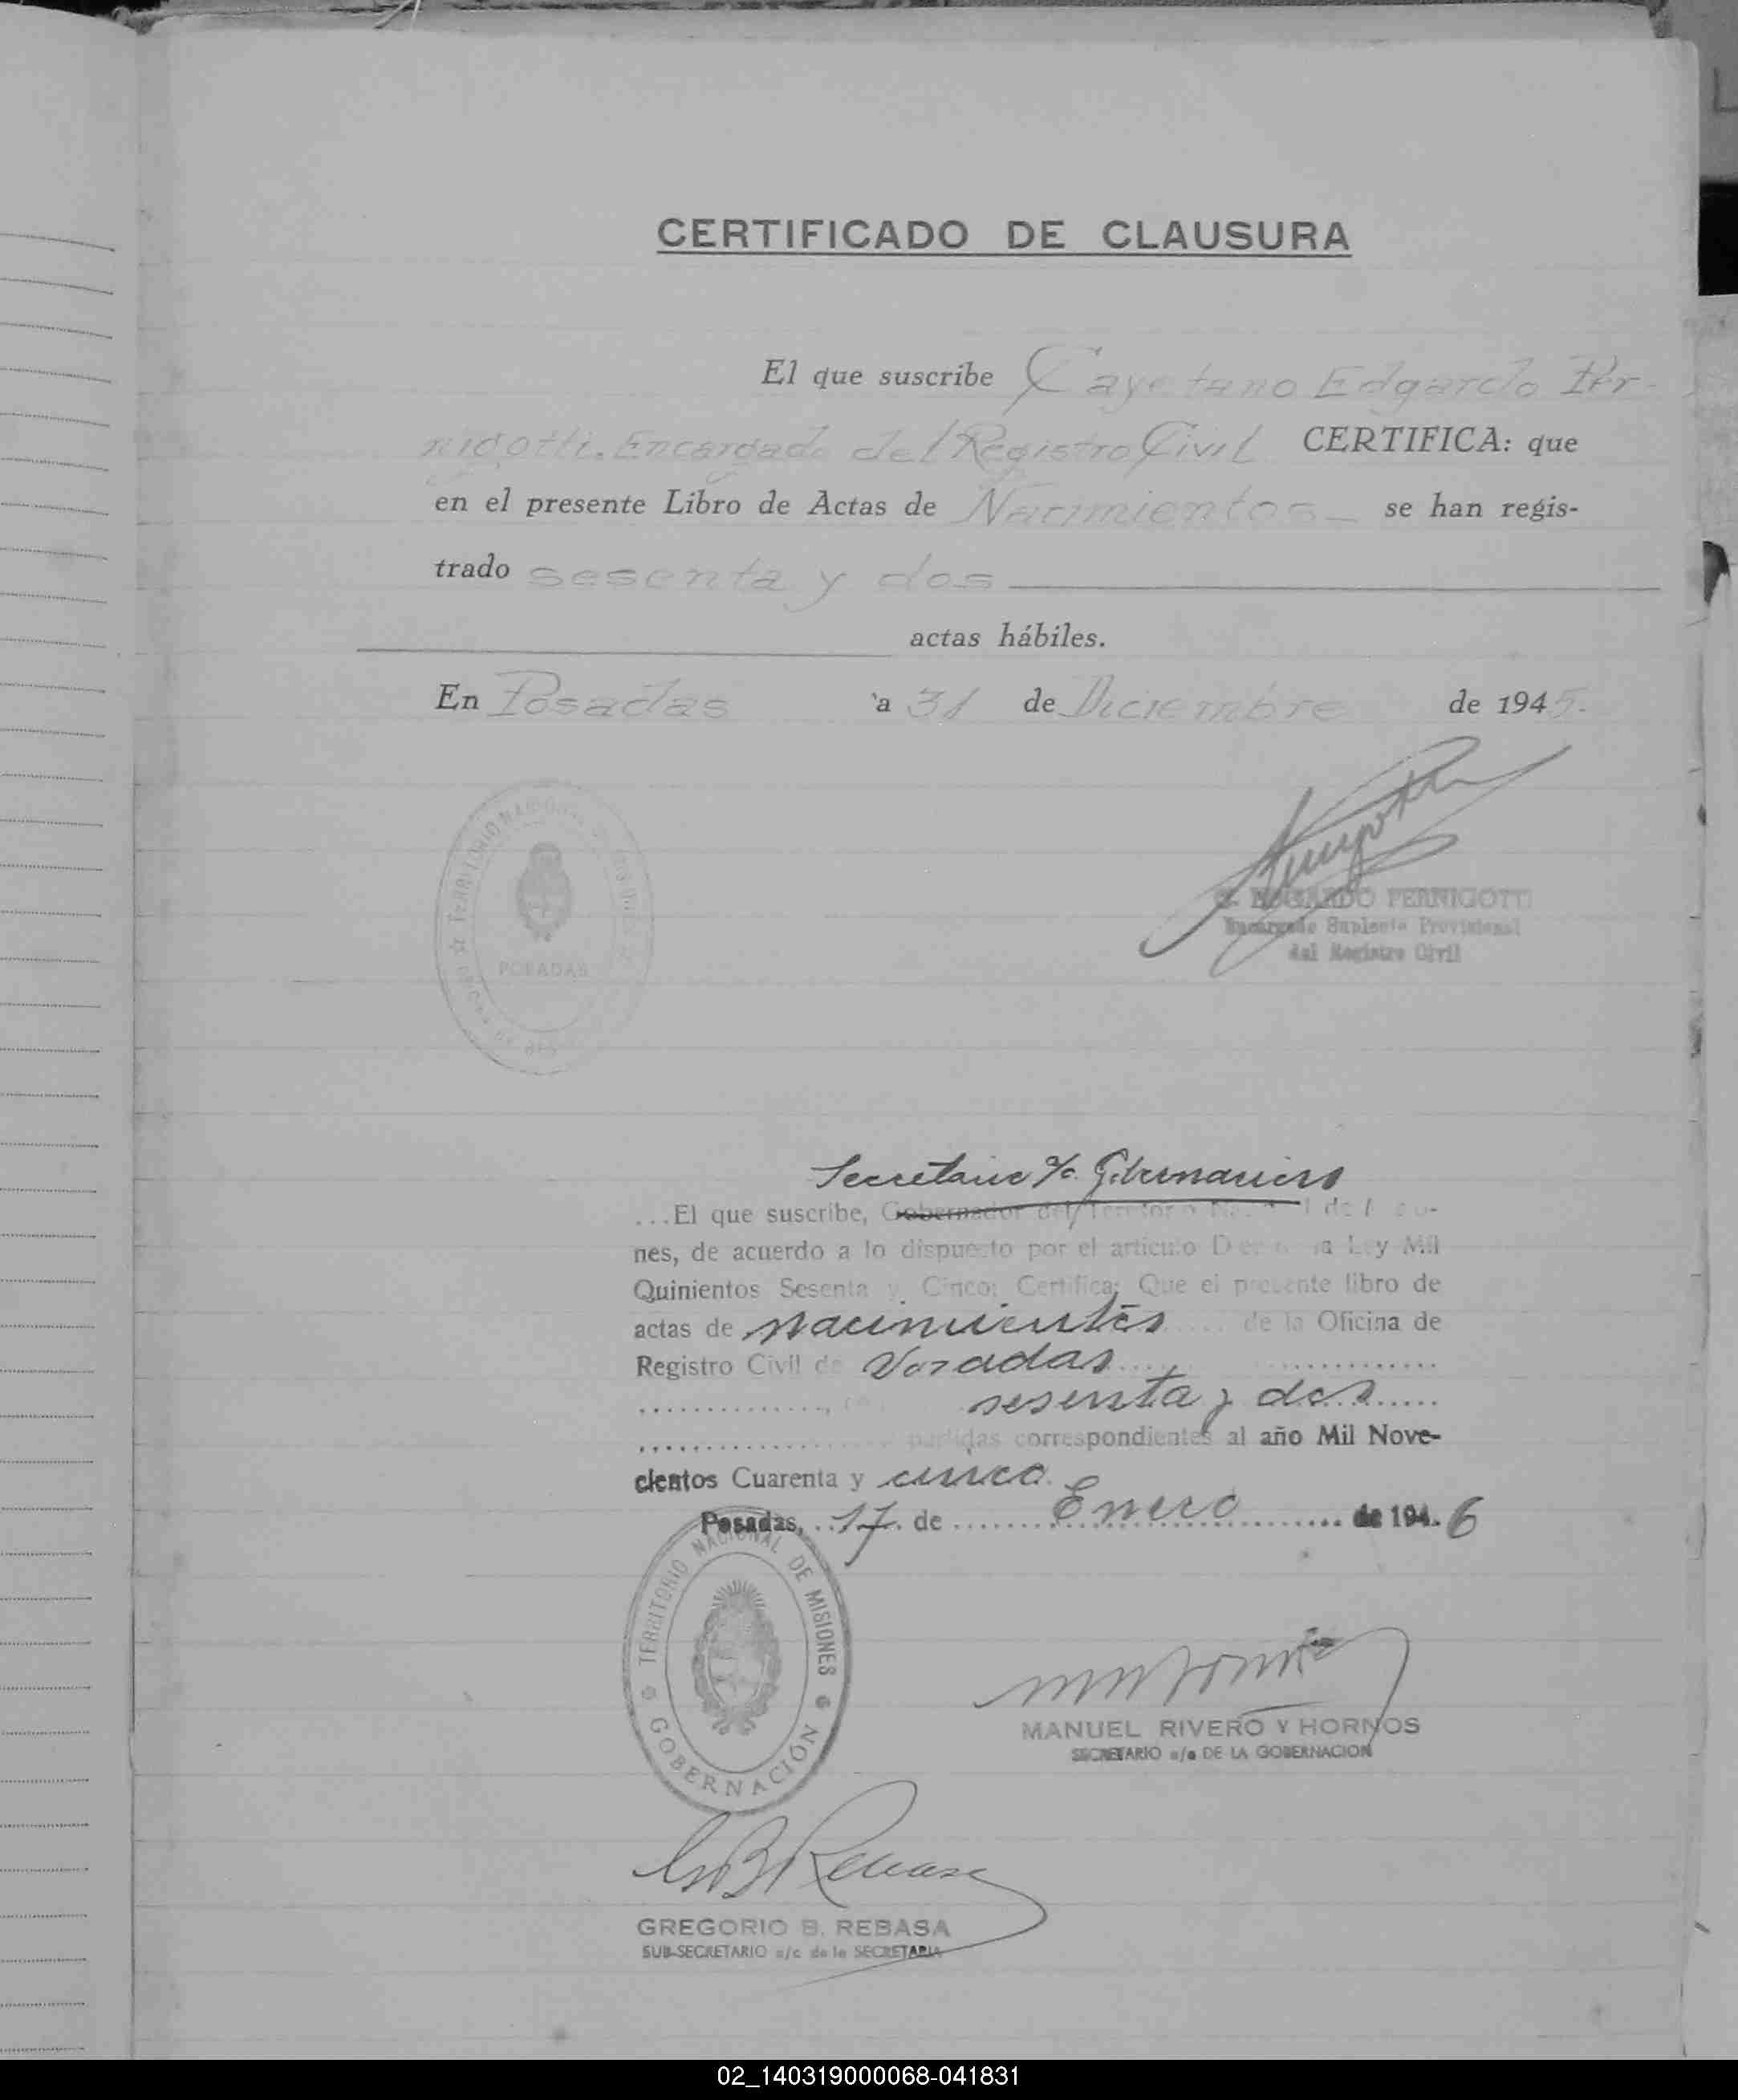 CERTIFICADO DE CLAUSURA
El que suscribe Cayetano Edgardo Per-
nigotti. Encargado del Registro Civil CERTIFICA: que
en el presente Libro de Actas de Nacimientos se han regis-
trado sesenta y dos
actas hábiles.
En Posadas a 31 de Diciembre de 1945.
TERRITORIO NACIONAL
POSADAS
C. EDGARDO PERNIGOTTI
Encargado Suplente Provisional
del Registro Civil
Secretario a/c. Gobernacion
...El que suscribe, Gobernador del Territorio
nes, de acuerdo a lo dispuesto por el artículo la Ley Mil
Quinientos Sesenta y Cinco; Certifica: Que el presente libro de
actas de nacimientos de la Oficina de
Registro Civil de Posadas
sesenta y dos
partidas correspondientes al año Mil Nove-
cientos Cuarenta y cinco.
Posadas, 17 de Enero de 194.6
TERRITORIO NACIONAL DE MISIONES
GOBERNACIÓN
MANUEL RIVERO Y HORNOS
SECRETARIO a/c DE LA GOBERNACION
GBRebasa
GREGORIO B. REBASA
SUB-SECRETARIO a/c de la SECRETARIA
02_140319000068-041831